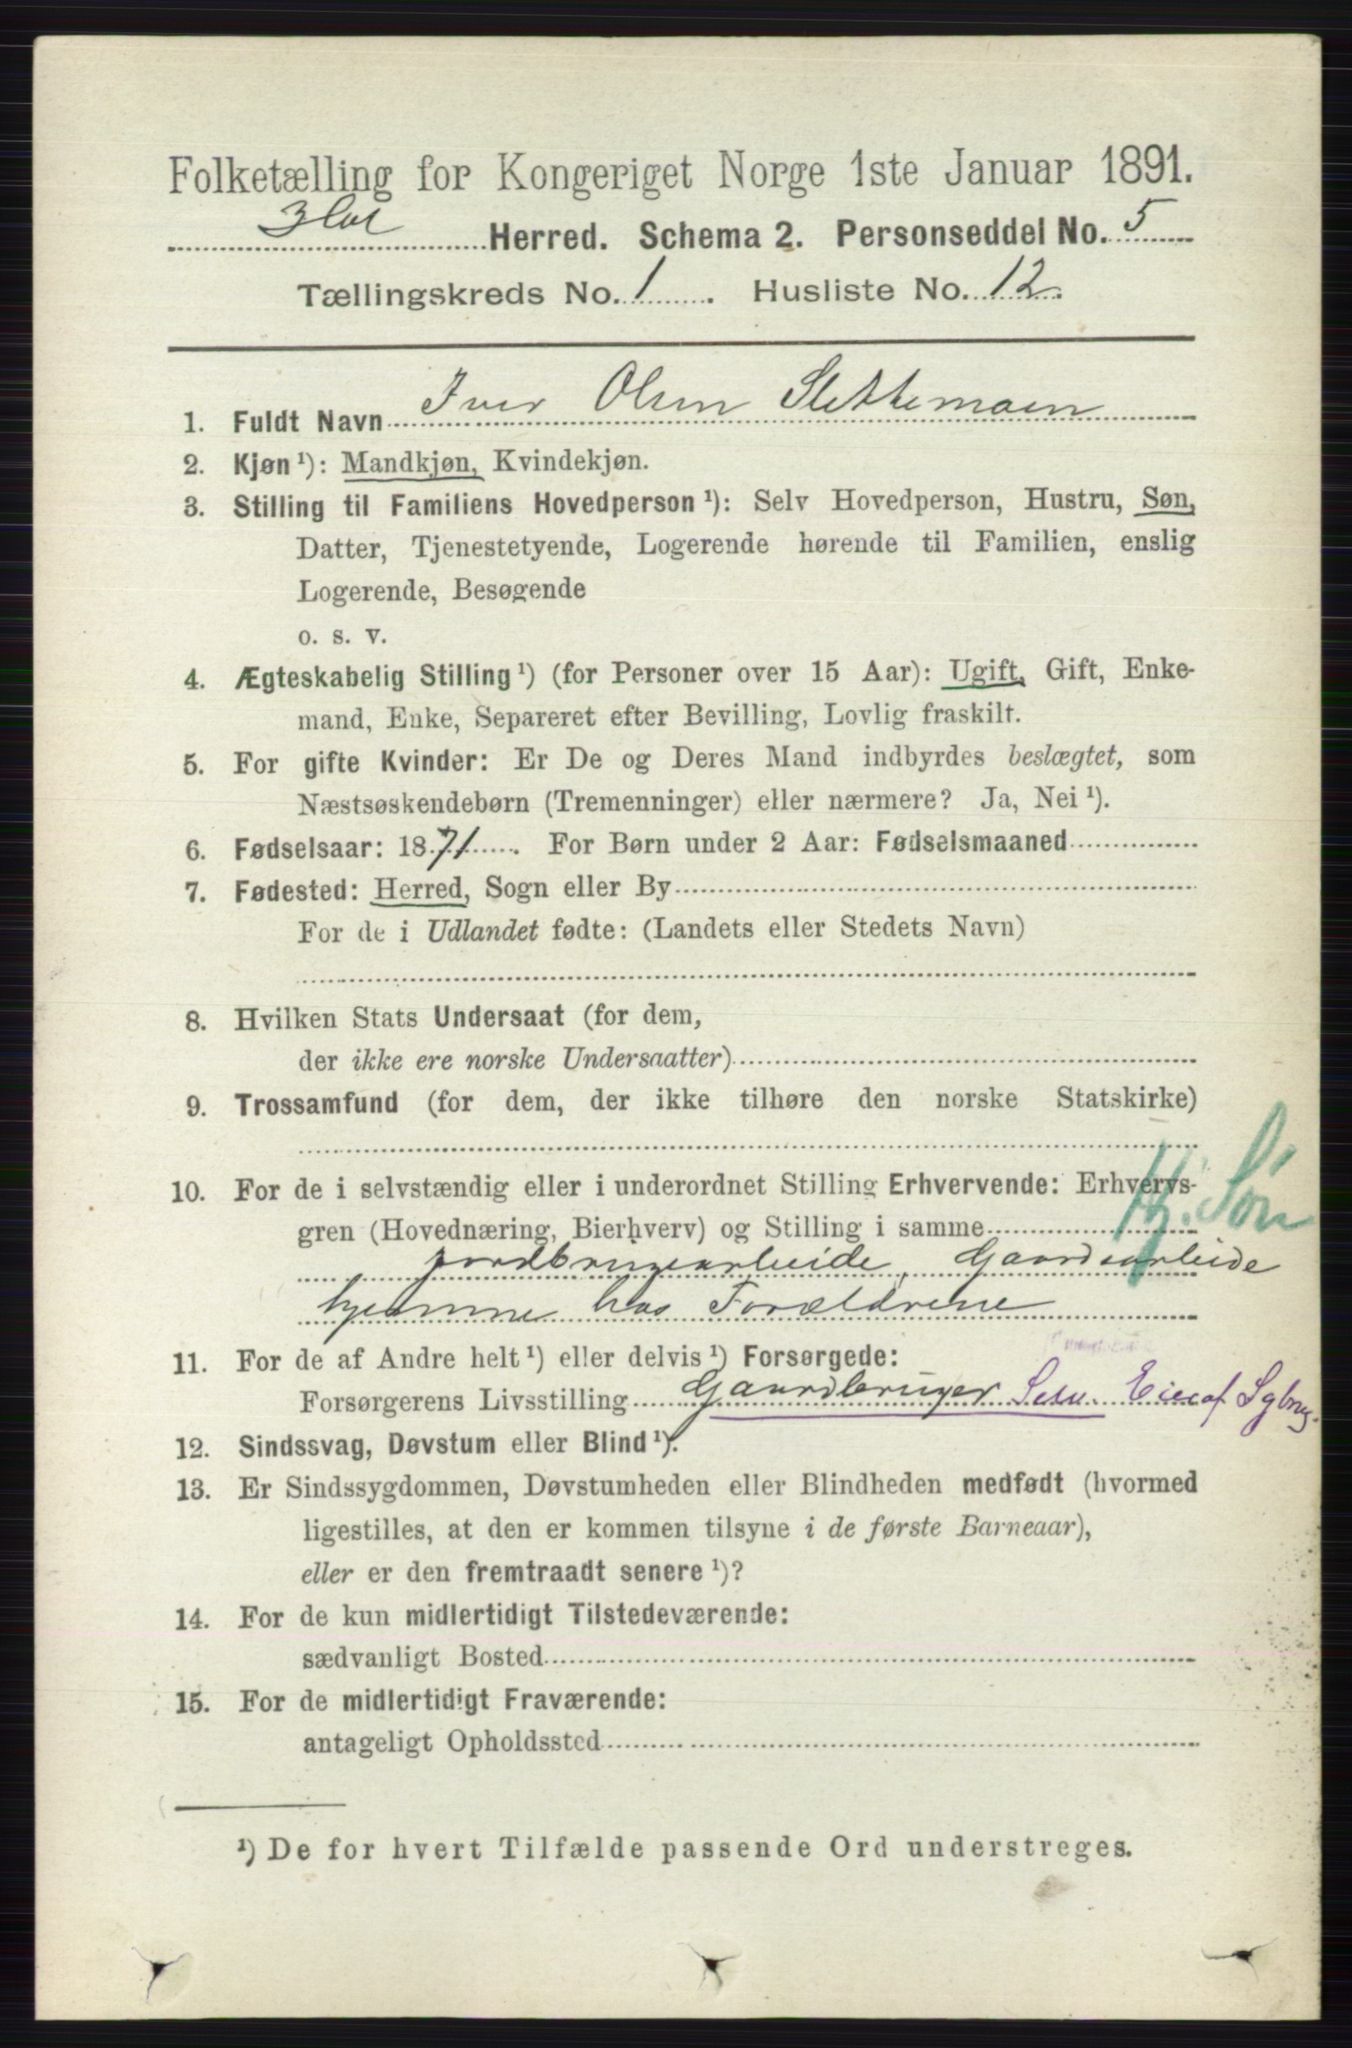 Folketælling for Kongeriget Norge 1ste Januar 1891.
Hol Herred. Schema 2. Personseddel No. 5
Tællingskreds No. 1. Husliste No. 12.
1. Fuldt Navn Iver Olsen Slettemoen
2. Kjøn ¹): Mandkjøn, Kvindekjøn.
3. Stilling til Familiens Hovedperson ¹): Selv Hovedperson, Hustru, Søn,
Datter, Tjenestetyende, Logerende hørende til Familien, enslig
Logerende, Besøgende
o. s. v.
4. Ægteskabelig Stilling ¹) (for Personer over 15 Aar): Ugift, Gift, Enke-
mand, Enke, Separeret efter Bevilling, Lovlig fraskilt.
5. For gifte Kvinder: Er De og Deres Mand indbyrdes beslægtet, som
Næstsøskendebørn (Tremenninger) eller nærmere? Ja, Nei ¹).
6. Fødselsaar: 1871. For Børn under 2 Aar: Fødselsmaaned
7. Fødested: Herred, Sogn eller By
For de i Udlandet fødte: (Landets eller Stedets Navn)
8. Hvilken Stats Undersaat (for dem,
der ikke ere norske Undersaatter)
9. Trossamfund (for dem, der ikke tilhøre den norske Statskirke)
10. For de i selvstændig eller i underordnet Stilling Erhvervende: Erhvervs-
gren (Hovednæring, Bierhverv) og Stilling i samme Hj. Søn
jordbrugsarbeide, Gaardsarbeide
hjemme hos Forældrene
11. For de af Andre helt ¹) eller delvis ¹) Forsørgede:
Forsørgerens Livsstilling Gaardbruger Selv. Eier af
12. Sindssvag, Døvstum eller Blind ¹).
13. Er Sindssygdommen, Døvstumheden eller Blindheden medfødt (hvormed
ligestilles, at den er kommen tilsyne i de første Barneaar),
eller er den fremtraadt senere ¹)?
14. For de kun midlertidigt Tilstedeværende:
sædvanligt Bosted
15. For de midlertidigt Fraværende:
antageligt Opholdssted
¹) De for hvert Tilfælde passende Ord understreges.